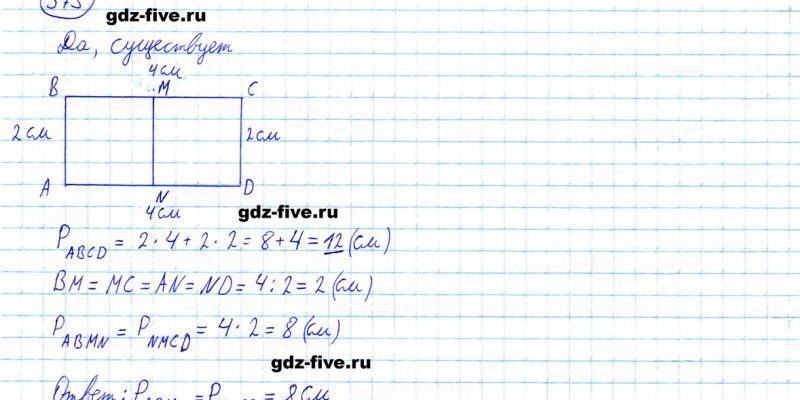 575
gdz-five.ru
Да, существует
4 см
B M C
2 см 2 см
A N D
4 см
gdz-five.ru
P ABCD = 2 · 4 + 2 · 2 = 8 + 4 = 12 (см)
BM = MC = AN = ND = 4 : 2 = 2 (см)
P ABMN = P NMCD = 4 · 2 = 8 (см)
gdz-five.ru
Ответ: P = P = 8 см